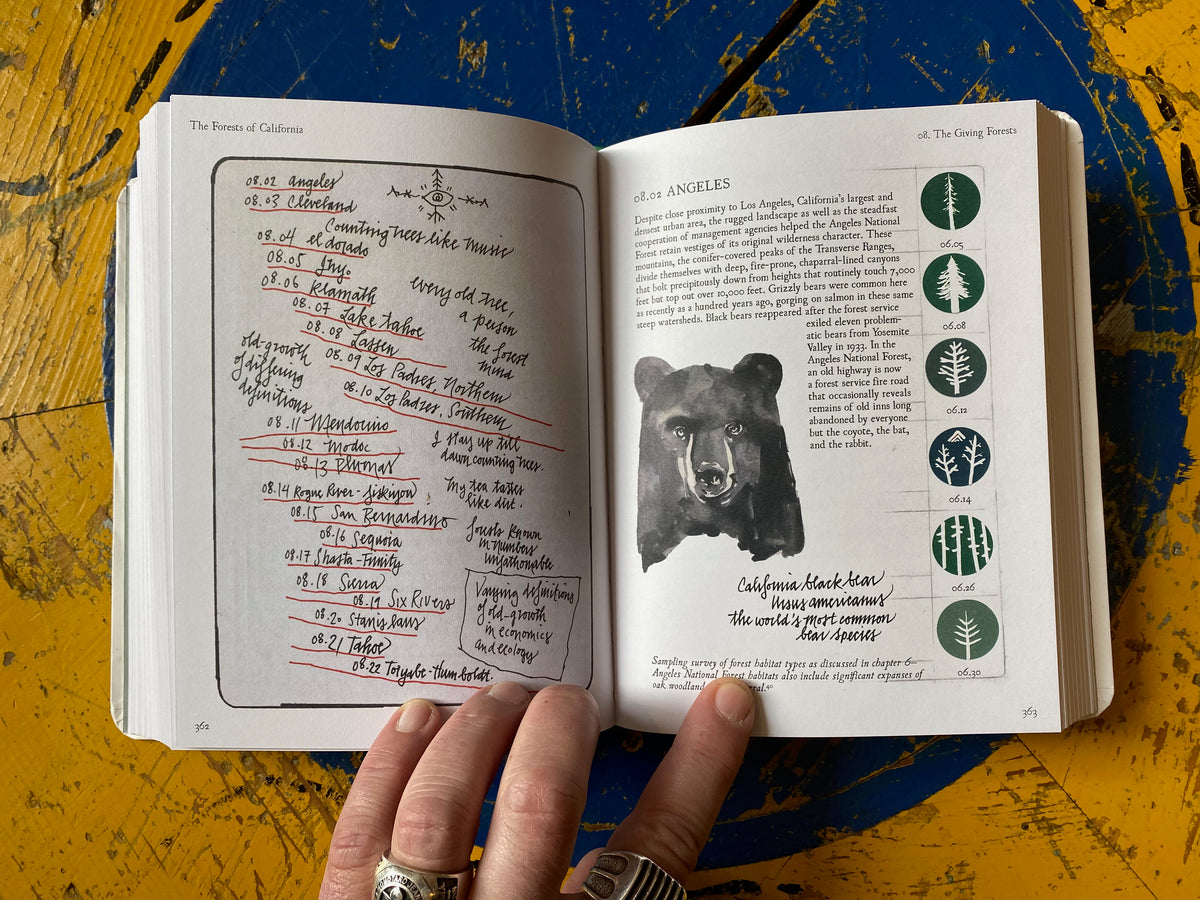 The Forests of California
08.02 Angeles
08.03 Cleveland
Counting trees like music
08.04 el dorado
08.05 Inyo
08.06 Klamath
every old tree,
a person
the forest
mind
08.07 Lake Tahoe
08.08 Lassen
old-growth
of differing
definitions
08.09 Los Padres, Northern
08.10 Los Padres, Southern
08.11 Mendocino
08.12 Modoc
08.13 Plumas
I stay up till
dawn counting trees.
My tea tastes
like dirt.
08.14 Rogue River-Siskiyou
08.15 San Bernardino
08.16 Sequoia
08.17 Shasta-Trinity
forests known
in numbers
unfathomable
08.18 Sierra
08.19 Six Rivers
08.20 Stanislaus
08.21 Tahoe
08.22 Toiyabe-Humboldt.
Varying definitions
of old-growth
in economics
and ecology
362
08. The Giving Forests
08.02 ANGELES
Despite close proximity to Los Angeles, California's largest and
densest urban area, the rugged landscape as well as the steadfast
cooperation of management agencies helped the Angeles National
Forest retain vestiges of its original wilderness character. These
mountains, the conifer-covered peaks of the Transverse Ranges,
divide themselves with deep, fire-prone, chaparral-lined canyons
that bolt precipitously down from heights that routinely touch 7,000
feet but top out over 10,000 feet. Grizzly bears were common here
as recently as a hundred years ago, gorging on salmon in these same
steep watersheds. Black bears reappeared after the forest service
exiled eleven problem-
atic bears from Yosemite
Valley in 1933. In the
Angeles National Forest,
an old highway is now
a forest service fire road
that occasionally reveals
remains of old inns long
abandoned by everyone
but the coyote, the bat,
and the rabbit.
California black bear
Ursus americanus
the world's most common
bear species
Sampling survey of forest habitat types as discussed in chapter 6—
Angeles National Forest habitats also include significant expanses of
oak woodland
06.05
06.08
06.12
06.14
06.26
06.30
363